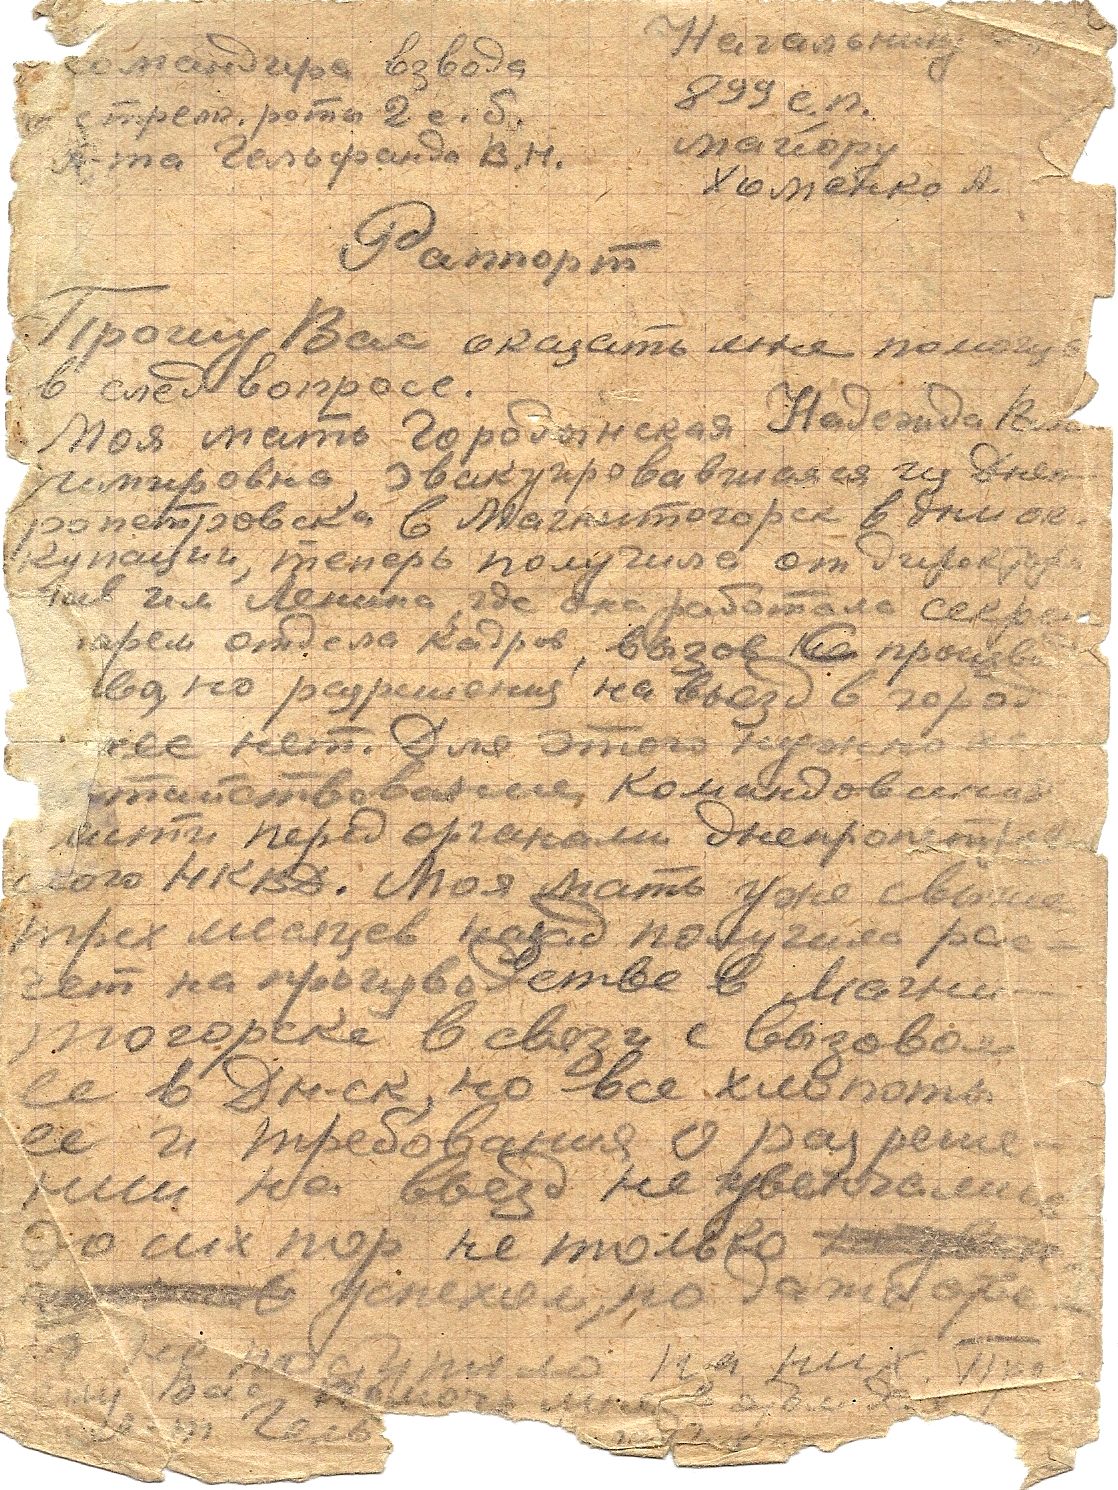 Начальнику
командира взвода
899 с.п.
стрелк. роты 2 с. б.
майору
л-та Гельфанда В.Н.
Хоменко А.
Раппорт
Прошу Вас оказать мне помощь
в след вопросе.
Моя мать Городынская Надежда Вла
димировна, эвакуировавшаяся из Днеп-
ропетровска в Магнитогорск в дни ок-
купации, теперь получила от директора
им Ленина, где она работала секре
тарем отдела кадров, вызов на произвд
ва, но разрешения на въезд в город
нее нет. Для этого нужно хо
атайствование, командовани
перед органами днепропетров
ского НКВД. Моя мать уже свыше
трех месяцев назад получила рас-
чет на производстве в Магни-
тогорске в связи с вызовом
ее в Дн-ск, но все хлопоты
ее и требования о разреше-
нии на въезд не увенчались
до сих пор не только
успехом, но даже отве-
не поступило на них. Про
шу Вас помочь мне
л-т Гель